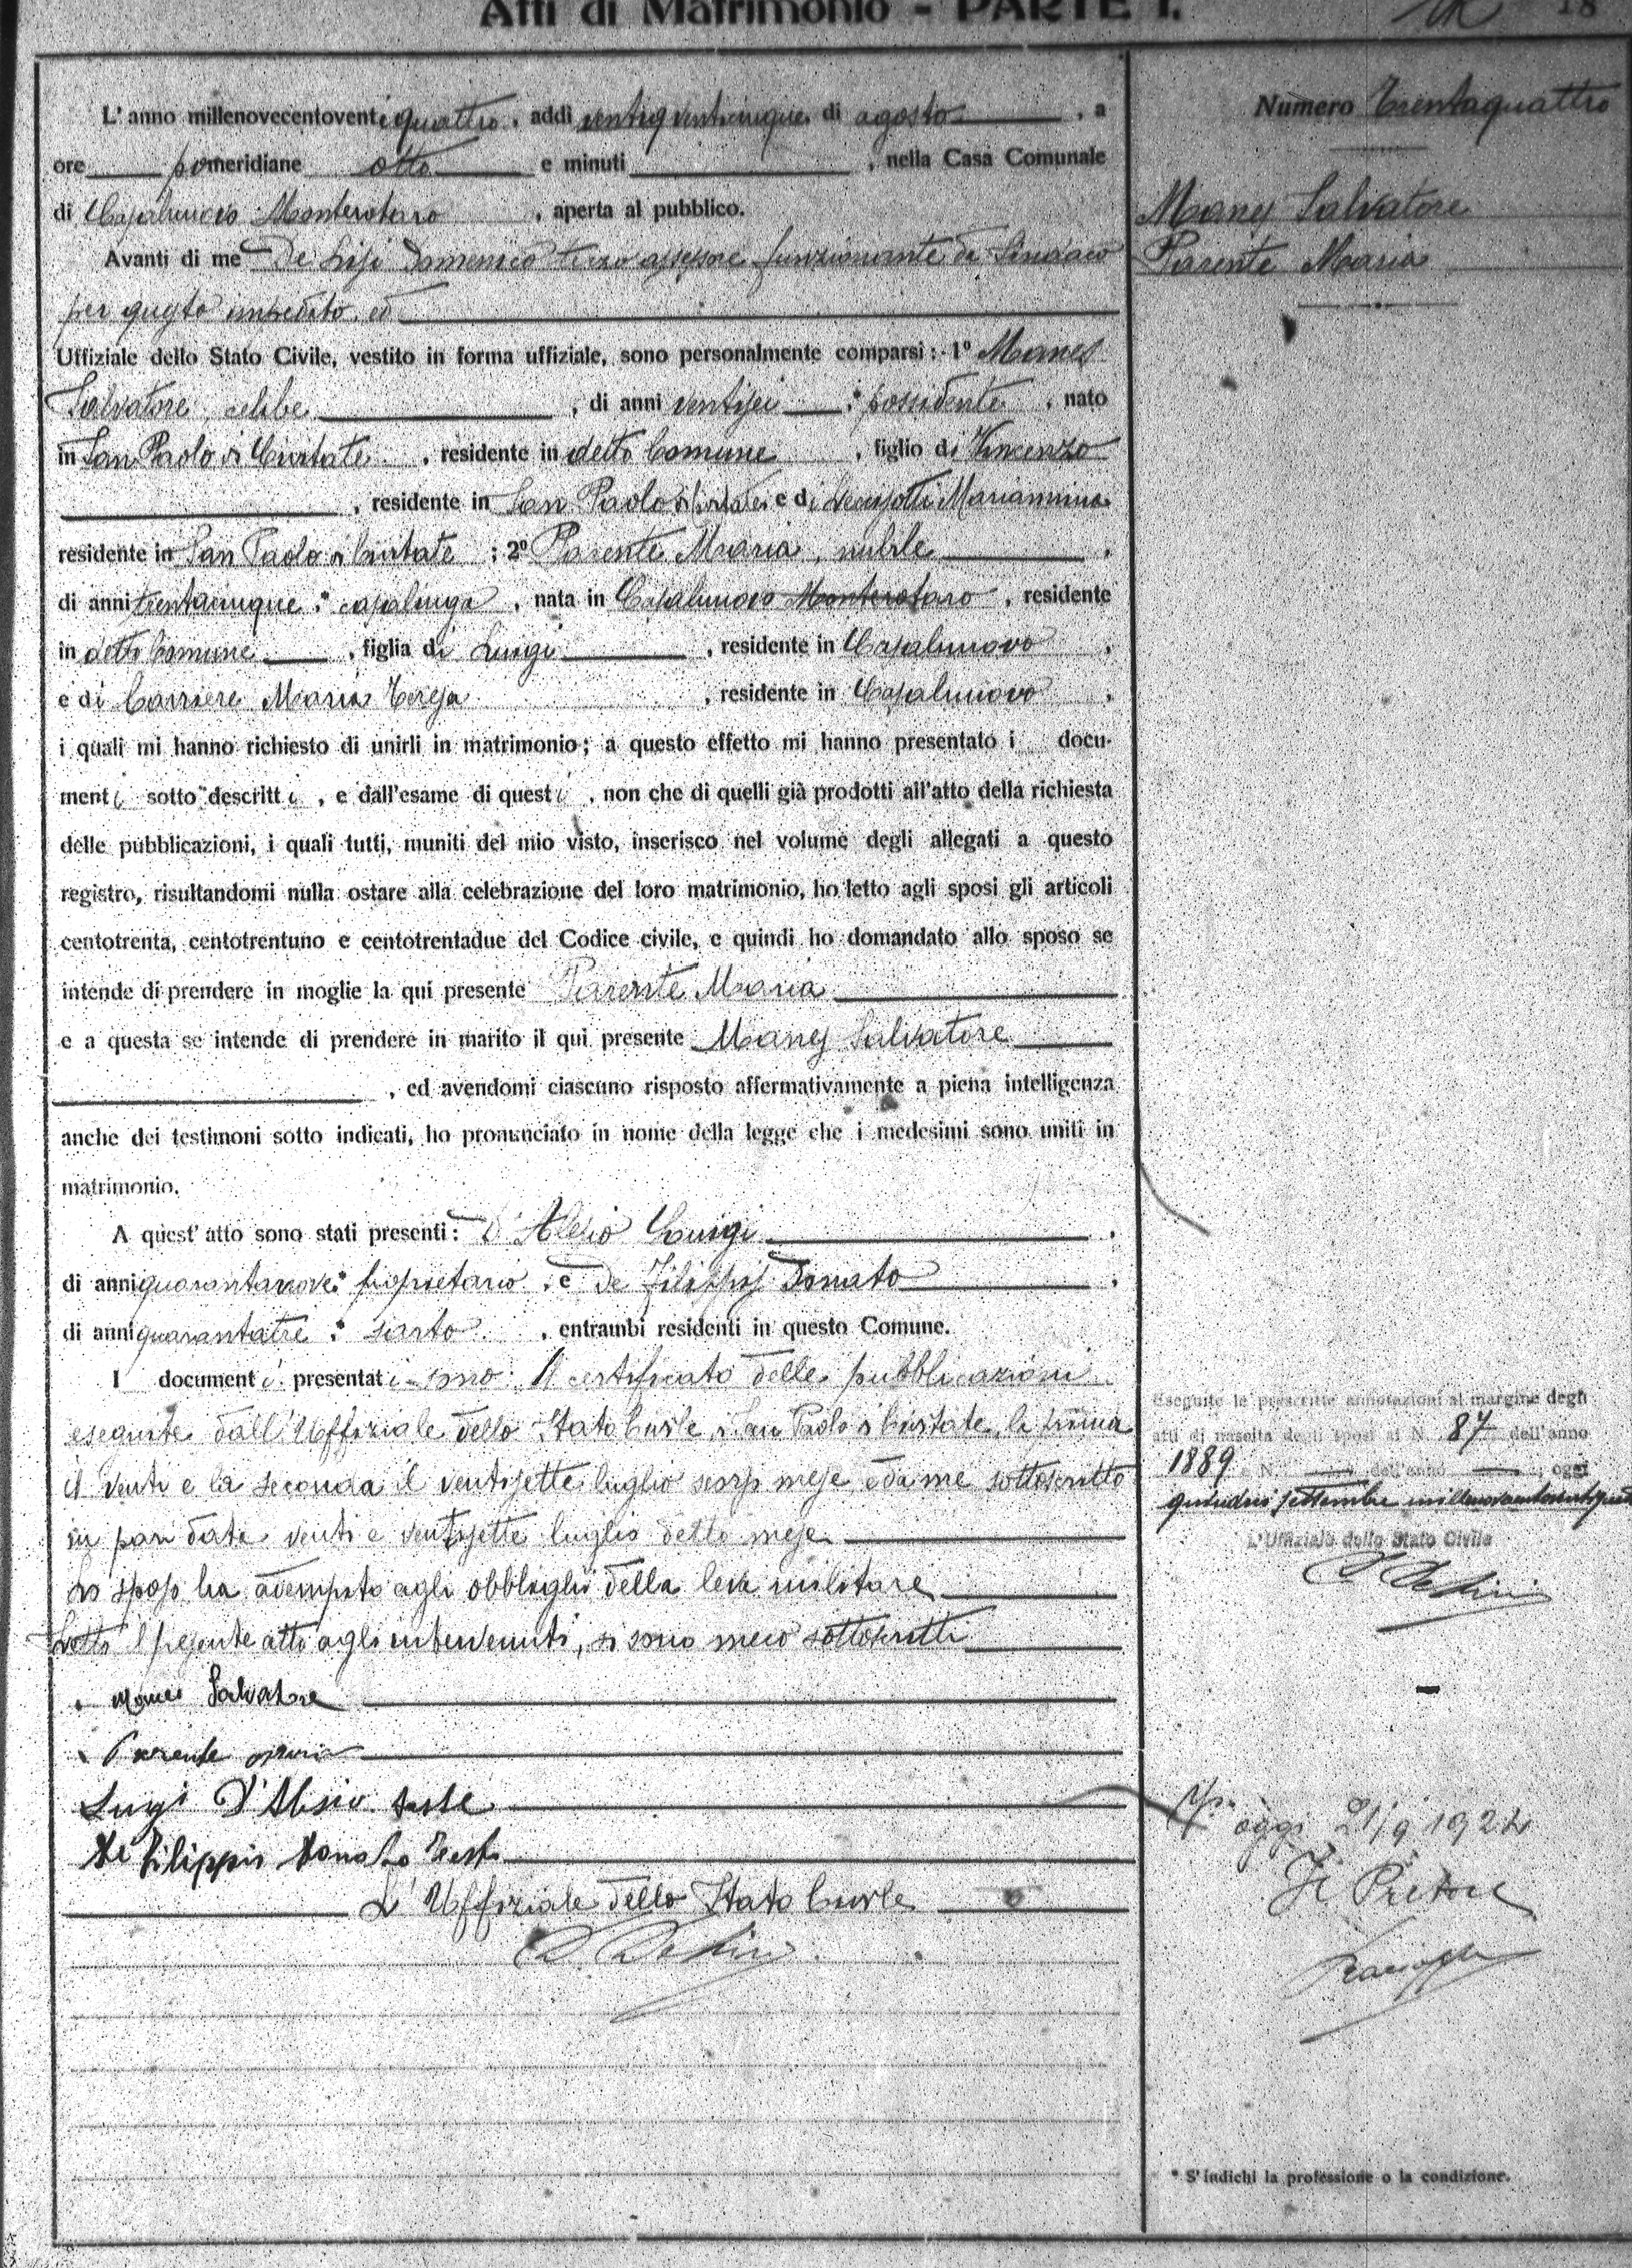 Atti di Matrimonio - PARTE I.
18
L'anno millenovecentoventiquattro, addì ventiq venticinque di agosto, a
ore pomeridiane otto e minuti , nella Casa Comunale
di Casalnuovo Monterotaro, aperta al pubblico.
Avanti di me De Lisi Domenico terzo assessore funzionante da Sindaco
per questo impedito, ed
Uffiziale dello Stato Civile, vestito in forma uffiziale, sono personalmente comparsi: 1º Manes
Salvatore, celibe, di anni ventisei, * possidente, nato
in San Paolo di Civitate, residente in detto Comune, figlio di Vincenzo
, residente in San Paolo di Civitate e di Mariannina
residente in San Paolo di Civitate; 2º Parente Maria, nubile,
di anni trentacinque, * casalinga, nata in Casalnuovo Monterotaro, residente
in detto Comune, figlia di Luigi, residente in Casalnuovo,
e di Carriere Maria Teresa, residente in Casalnuovo,
i quali mi hanno richiesto di unirli in matrimonio; a questo effetto mi hanno presentato i docu-
menti sotto descritti, e dall'esame di questi, non che di quelli già prodotti all'atto della richiesta
delle pubblicazioni, i quali tutti, muniti del mio visto, inserisco nel volume degli allegati a questo
registro, risultandomi nulla ostare alla celebrazione del loro matrimonio, ho letto agli sposi gli articoli
centotrenta, centotrentuno e centotrentadue del Codice civile, e quindi ho domandato allo sposo se
intende di prendere in moglie la qui presente Parente Maria
e a questa se intende di prendere in marito il qui presente Manes Salvatore
, ed avendomi ciascuno risposto affermativamente a piena intelligenza
anche dei testimoni sotto indicati, ho pronunciato in nome della legge che i medesimi sono uniti in
matrimonio.
A quest'atto sono stati presenti: D'Alesio Luigi,
di anni quarantanove, * proprietario, e De Filippis Donato,
di anni quarantatre, * sarto, entrambi residenti in questo Comune.
I documenti presentati sono: Il certificato delle pubblicazioni
eseguite dall'Uffiziale dello Stato Civile di San Paolo di Civitate, la prima
il venti e la seconda il ventisette luglio scorso mese e da me sottoscritto
in pari data venti e ventisette luglio detto mese.
Lo sposo ha adempito agli obblighi della leva militare
Letto il presente atto agli intervenuti, si sono meco sottoscritti
Manes Salvatore
Parente Maria
Luigi D'Alesio teste
De Filippis Donato Teste
L'Uffiziale dello Stato Civile
D. De Lisi
Numero Trentaquattro
Manes Salvatore
Parente Maria
Eseguite le prescritte annotazioni al margine degli
atti di nascita degli sposi ai N. 87 dell'anno
1889 e N. dell'anno ; oggi
quindici settembre millenovecentoventiquattro
L'Uffiziale dello Stato Civile
D. De Lisi
oggi 21/9 1924
Il Pretore
* S'indichi la professione o la condizione.